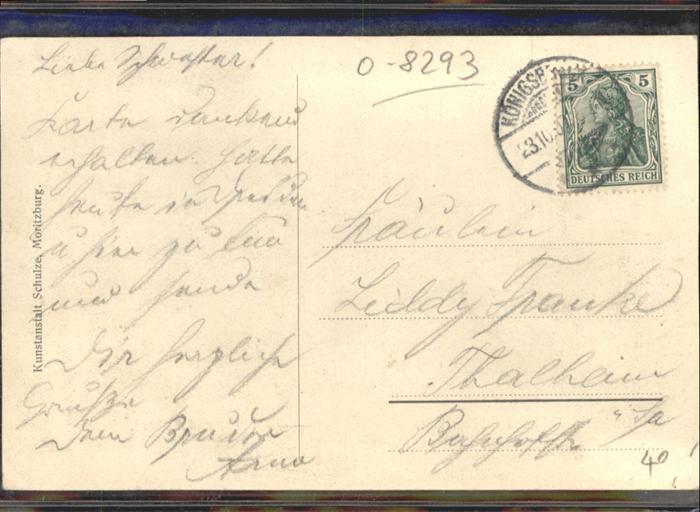 Liebe Schwester!
Karte dankend
erhalten. Hatte
heute in
u hier zu tun
und sende
Dir herzliche
Grüße
Dein Bruder
Arno
0-8293
KÖNIGSB
23.10.
5 5
DEUTSCHES REICH
Fräulein
Liddy Franke
Thalheim
Bahnhofstr.
40
Kunstanstalt Schulze, Moritzburg.